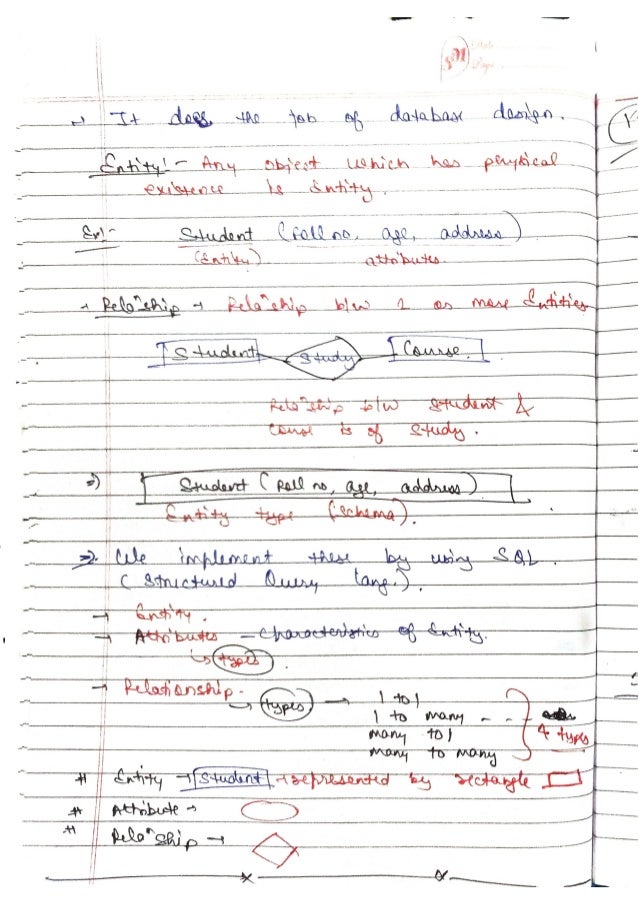 Date
Page
→ It does the job of database design.
Entity:- Any object which has physical
existence is Entity.
Ex:- Student (Roll no, age, address)
(Entity) attributes
→ Relaⁿship → Relaⁿship b/w 2 or more Entities
Student Study Course
Relaⁿship b/w Student &
Course is of Study.
⇒ Student (Roll no, age, address)
Entity type (schema).
⇒ We implement these by using SQL.
(Structured Query Lang.).
→ Entity.
→ Attributes – Characteristics of Entity.
↳ types.
→ Relationship-
↳ types → 1 to 1
1 to many - -
many to 1
many to many
4 types
# Entity → Student → represented by rectangle
# Attribute →
# Relaⁿship →